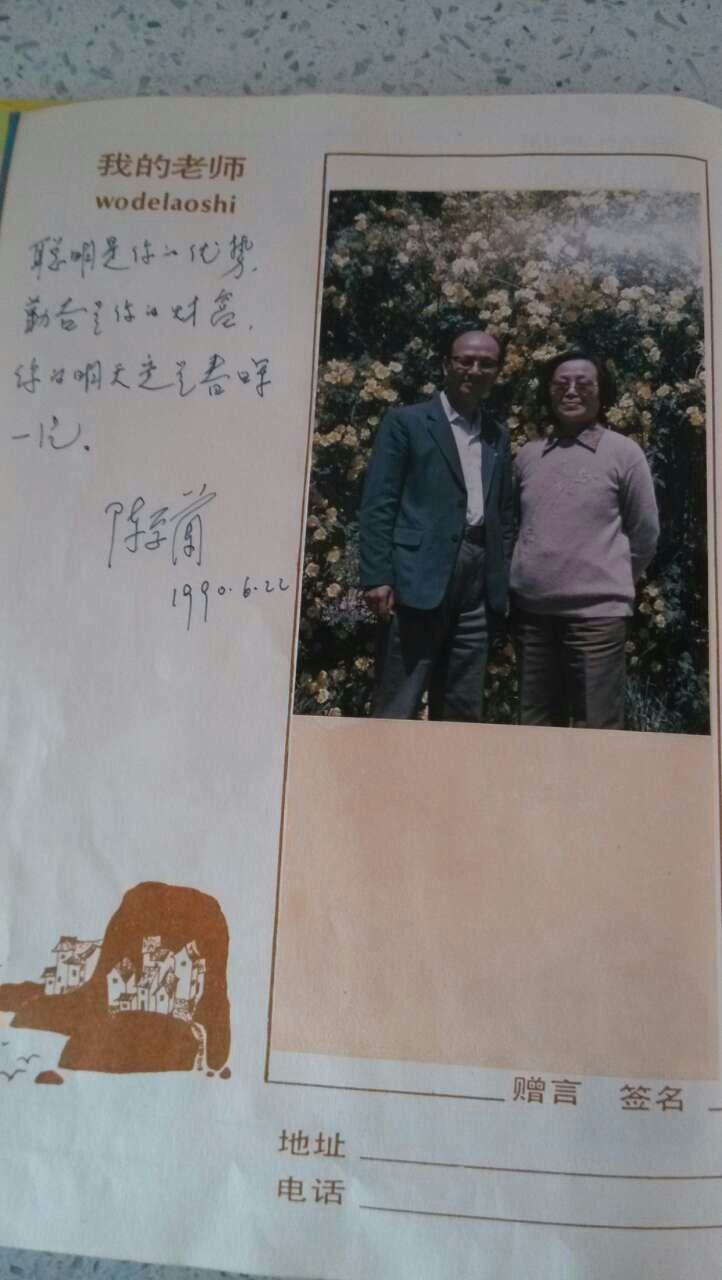 我的老师
wodelaoshi
聪明是你的优势，
勤奋是你的财富，
你的明天定是春晖
一片。
陈
1990.6.22
赠言 签名
地址
电话